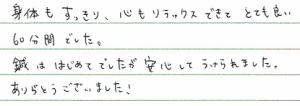 身体もすっきり、心もリラックスできてとても良い
60分間でした。
鍼ははじめてでしたが安心してうけられました。
ありがとうございました!